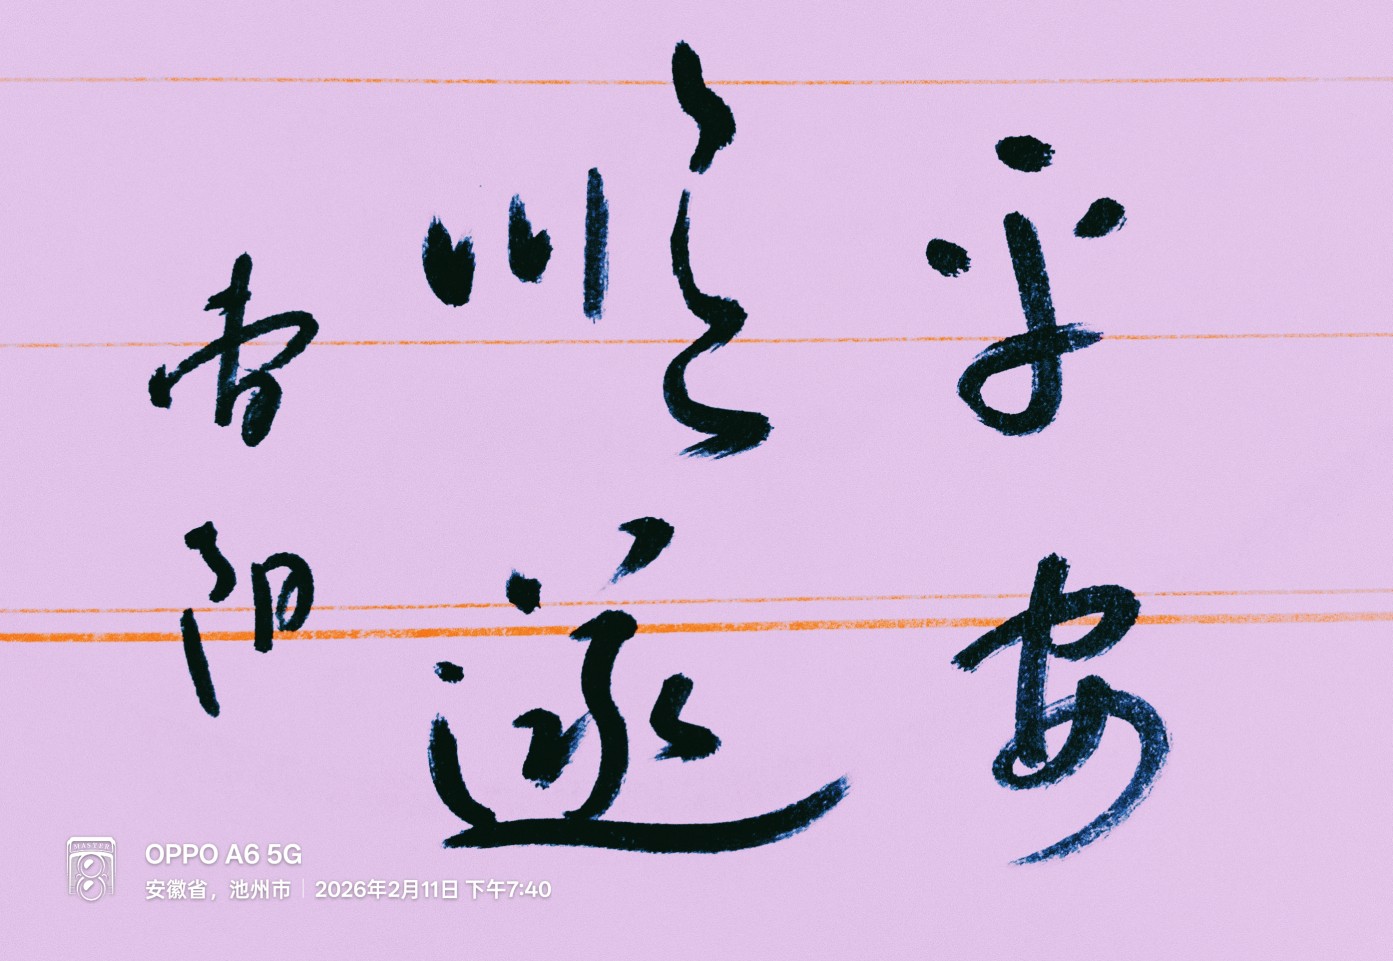 平安
顺遂
青阳
MASTER
OPPO A6 5G
安徽省，池州市 | 2026年2月11日 下午7:40